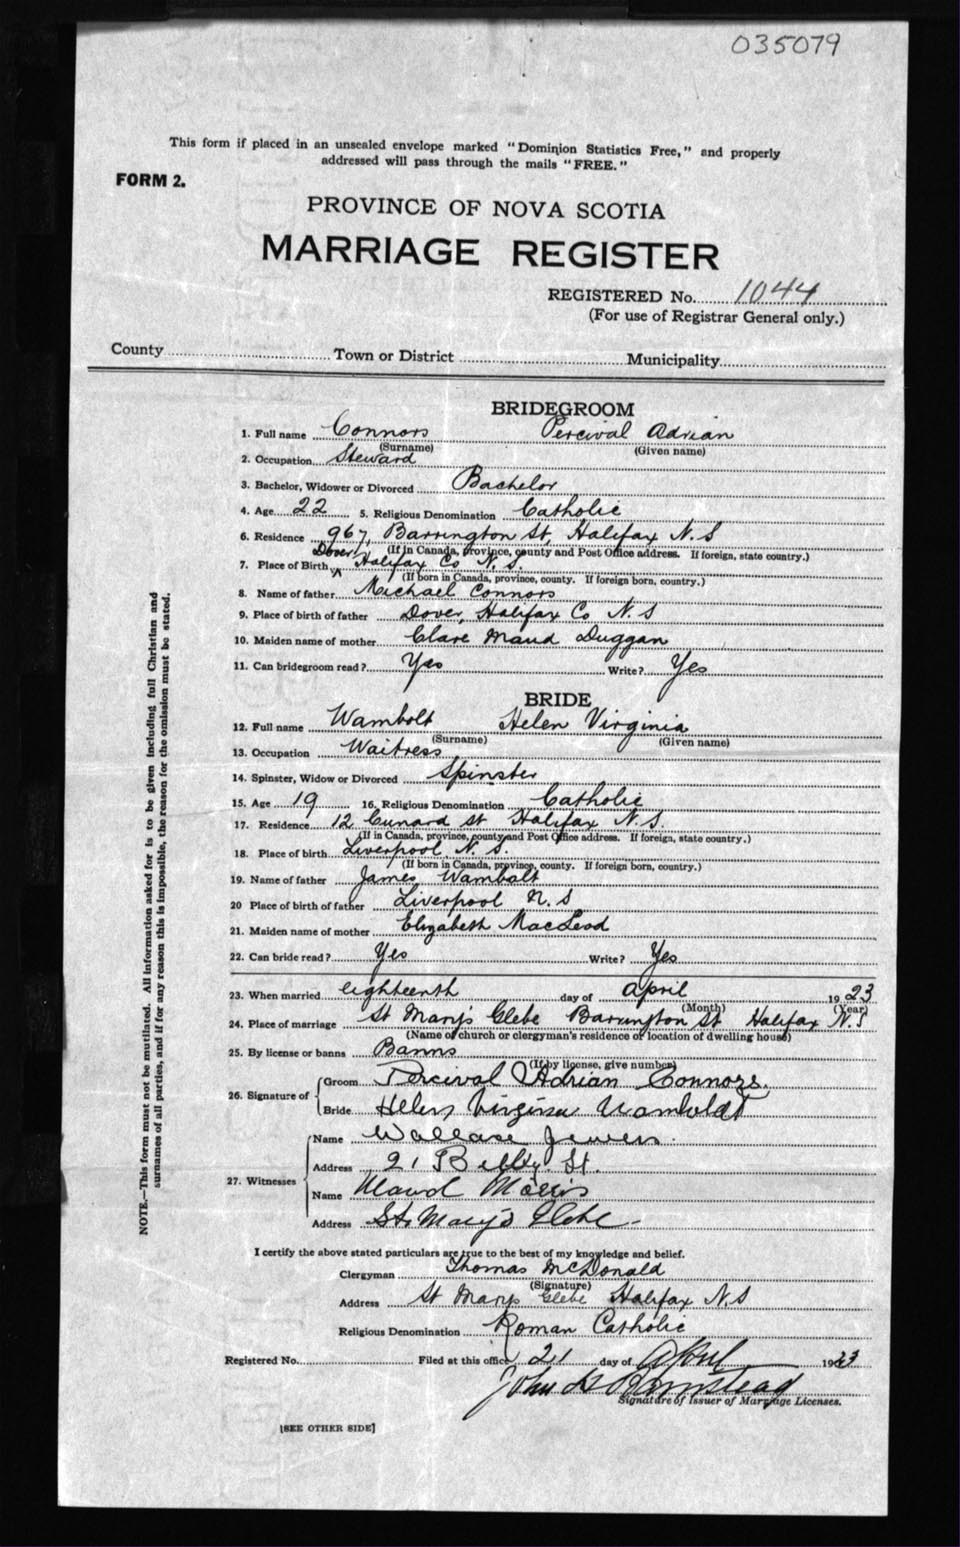 035079
This form if placed in an unsealed envelope marked "Dominion Statistics Free," and properly
addressed will pass through the mails "FREE."
FORM 2.
PROVINCE OF NOVA SCOTIA
MARRIAGE REGISTER
REGISTERED No. 1044
(For use of Registrar General only.)
County Town or District Municipality
BRIDEGROOM
1. Full name Connors Percival Adrian
(Surname) (Given name)
2. Occupation Steward
3. Bachelor, Widower or Divorced Bachelor
4. Age 22 5. Religious Denomination Catholic
6. Residence 967, Barrington St, Halifax N.S
(If in Canada, province, county and Post Office address. If foreign, state country.)
7. Place of Birth Dover, Halifax Co N.S.
(If born in Canada, province, county. If foreign born, country.)
8. Name of father Michael Connors
9. Place of birth of father Dover, Halifax Co N.S
10. Maiden name of mother Clare Maud Duggan
11. Can bridegroom read? Yes Write? Yes
BRIDE
12. Full name Wambolt Helen Virginia
(Surname) (Given name)
13. Occupation Waitress
14. Spinster, Widow or Divorced Spinster
15. Age 19 16. Religious Denomination Catholic
17. Residence 12 Cunard St Halifax N.S.
(If in Canada, province, county and Post Office address. If foreign, state country.)
18. Place of birth Liverpool N.S.
(If born in Canada, province, county. If foreign born, country.)
19. Name of father James Wambolt
20 Place of birth of father Liverpool N.S
21. Maiden name of mother Elizabeth MacLeod
22. Can bride read? Yes Write? Yes
23. When married eighteenth day of April 1923
(Month) (Year)
24. Place of marriage St Mary's Glebe Barrington St Halifax N.S
(Name of church or clergyman's residence or location of dwelling house)
25. By license or banns Banns
(If by license, give number)
26. Signature of Groom Percival Adrian Connors.
Bride Helen Virginia Wamboldt
27. Witnesses
Name Wallace
Address 21 St.
Name Maud Morris
Address St. Mary's Glebe
I certify the above stated particulars are true to the best of my knowledge and belief.
Clergyman Thomas McDonald
(Signature)
Address St Marys Glebe Halifax N.S
Religious Denomination Roman Catholic
Registered No. Filed at this office 21 day of April 1923
John
Signature of Issuer of Marriage Licenses.
[SEE OTHER SIDE]
NOTE.—This form must not be mutilated. All information asked for is to be given including full Christian and
surnames of all parties, and if for any reason this is impossible, the reason for the omission must be stated.